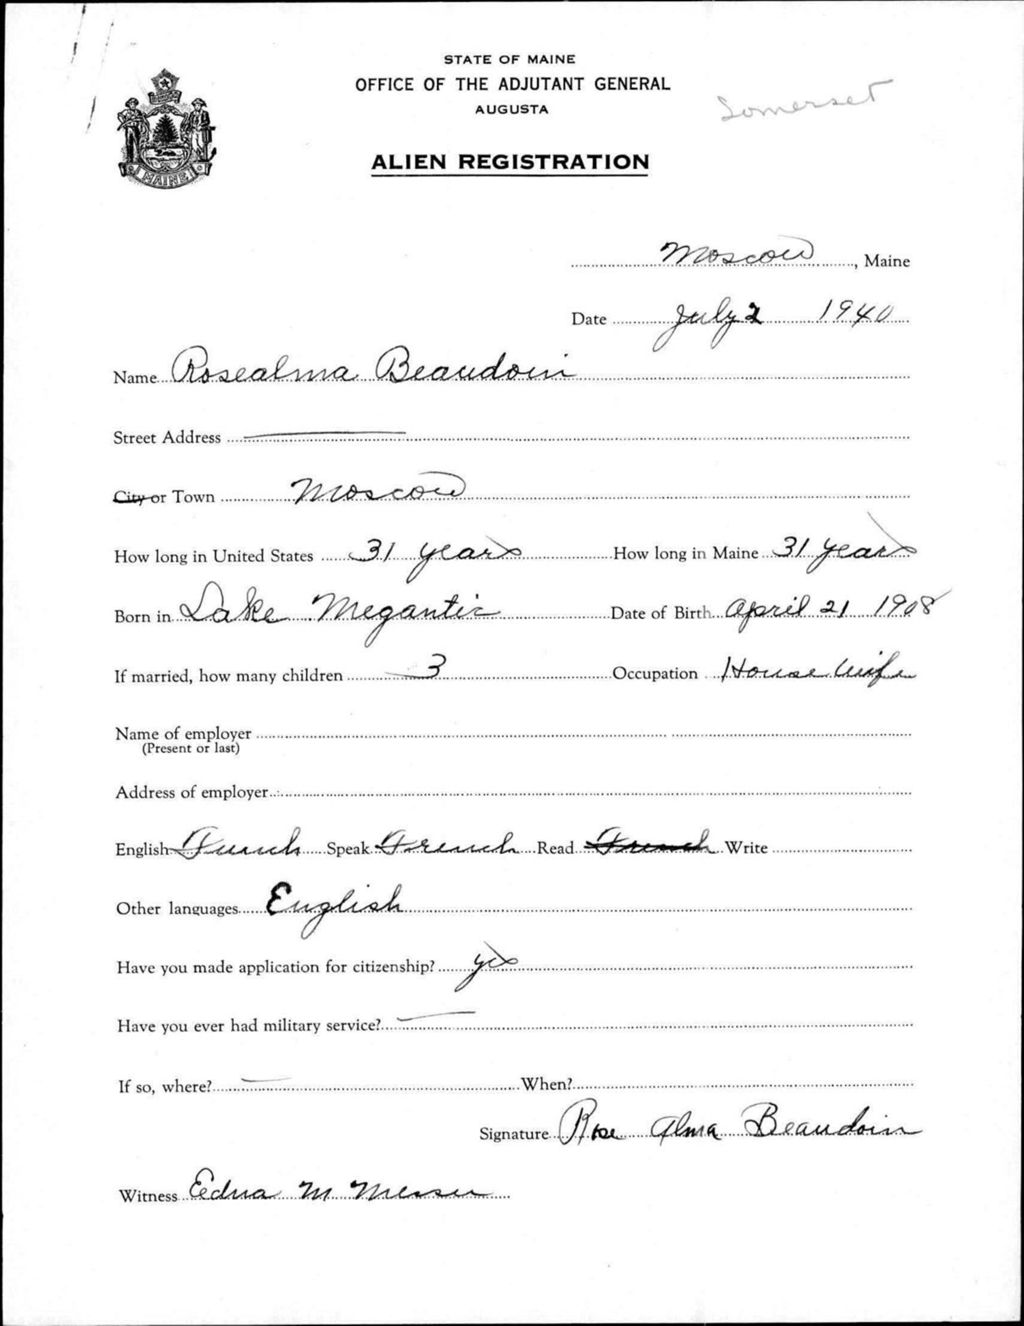 STATE OF MAINE
OFFICE OF THE ADJUTANT GENERAL
AUGUSTA
Somerset
ALIEN REGISTRATION
MAINE
Moscow, Maine
Date July 2 1940
Name Rosealma Beaudoin
Street Address —
City or Town Moscow
How long in United States 31 years How long in Maine 31 years
Born in Lake Megantic Date of Birth April 21 1908
If married, how many children 3 Occupation House wife
Name of employer
(Present or last)
Address of employer
English French Speak French Read French Write
Other languages English
Have you made application for citizenship? yes
Have you ever had military service? —
If so, where? — When?
Signature Rose Alma Beaudoin
Witness Edna M Messer